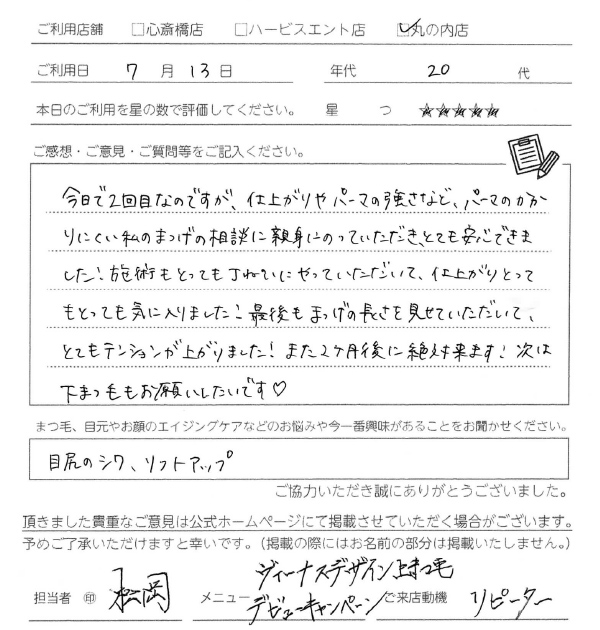 ご利用店舗 □心斎橋店 □ハービスエント店 ☑丸の内店
ご利用日 7 月 13 日 年代 20 代
本日のご利用を星の数で評価してください。 星 つ ★★★★★
ご感想・ご意見・ご質問等をご記入ください。
今日で2回目なのですが、仕上がりやパーマの強さなど、パーマのかか
りにくい私のまつげの相談に親身にのっていただき、とても安心できま
した!施術もとってもていねいにやっていただいて、仕上がりとって
もとっても気に入りました!最後もまつげの長さを見せていただいて、
とてもテンションが上がりました!また2ヶ月後に絶対来ます!次は
下まつ毛もお願いしたいです♡
まつ毛、目元やお顔のエイジングケアなどのお悩みや今一番興味があることをお聞かせください。
目尻のシワ、リフトアップ
ご協力いただき誠にありがとうございました。
頂きました貴重なご意見は公式ホームページにて掲載させていただく場合がございます。
予めご了承いただけますと幸いです。(掲載の際にはお名前の部分は掲載いたしません。)
ヴィーナスデザイン上まつ毛
担当者 ㊞ 松岡 メニュー デビューキャンペーン ご来店動機 リピーター